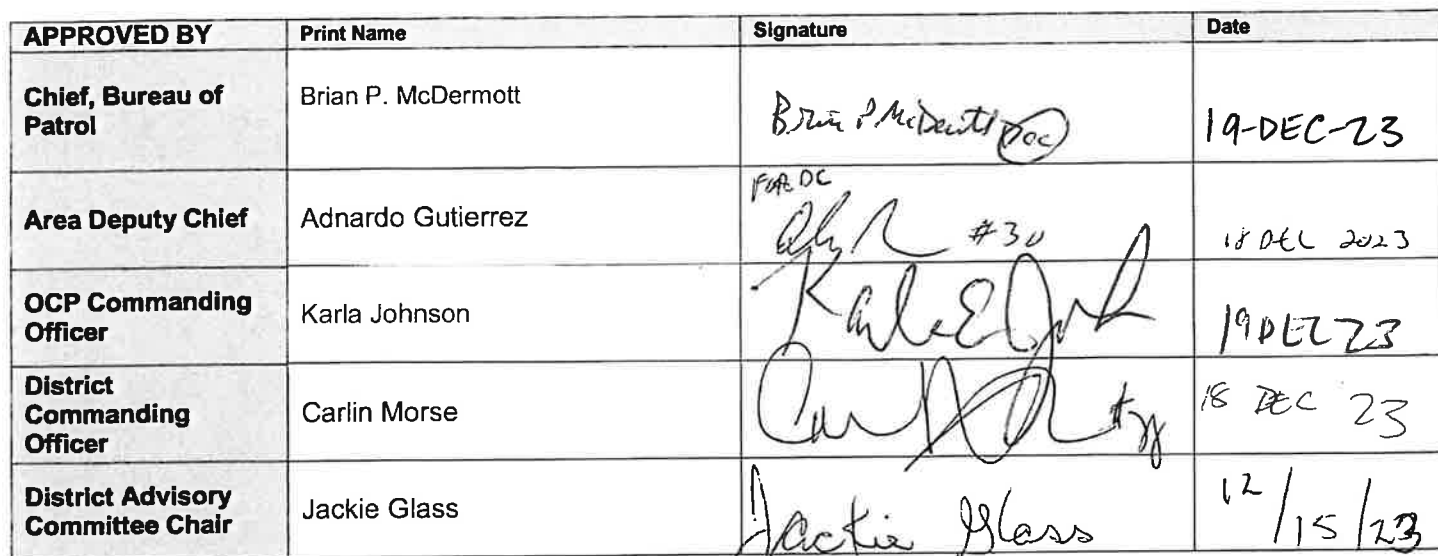 APPROVED BY Print Name Signature Date
Chief, Bureau of Patrol Brian P. McDermott Brian P McDermott 19-DEC-23
FOR DC
Area Deputy Chief Adnardo Gutierrez #30 18 DEC 2023
OCP Commanding Officer Karla Johnson Karla E Johnson 19 DEC 23
District Commanding Officer Carlin Morse 18 DEC 23
District Advisory Committee Chair Jackie Glass Jackie Glass 12/15/23